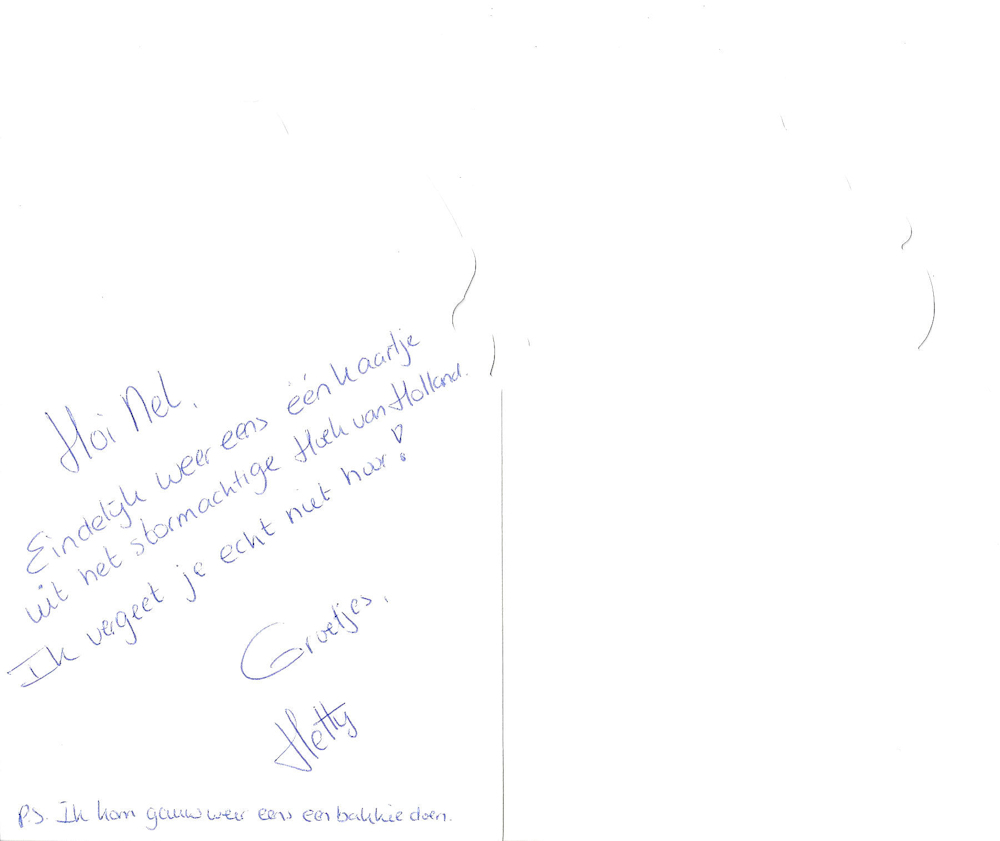 Hoi Nel,
Eindelijk weer eens één kaartje
uit het stormachtige Hoek van Holland.
Ik vergeet je echt niet hoor!
Groetjes,
Hetty
P.S. Ik kom gauw weer eens een bakkie doen.